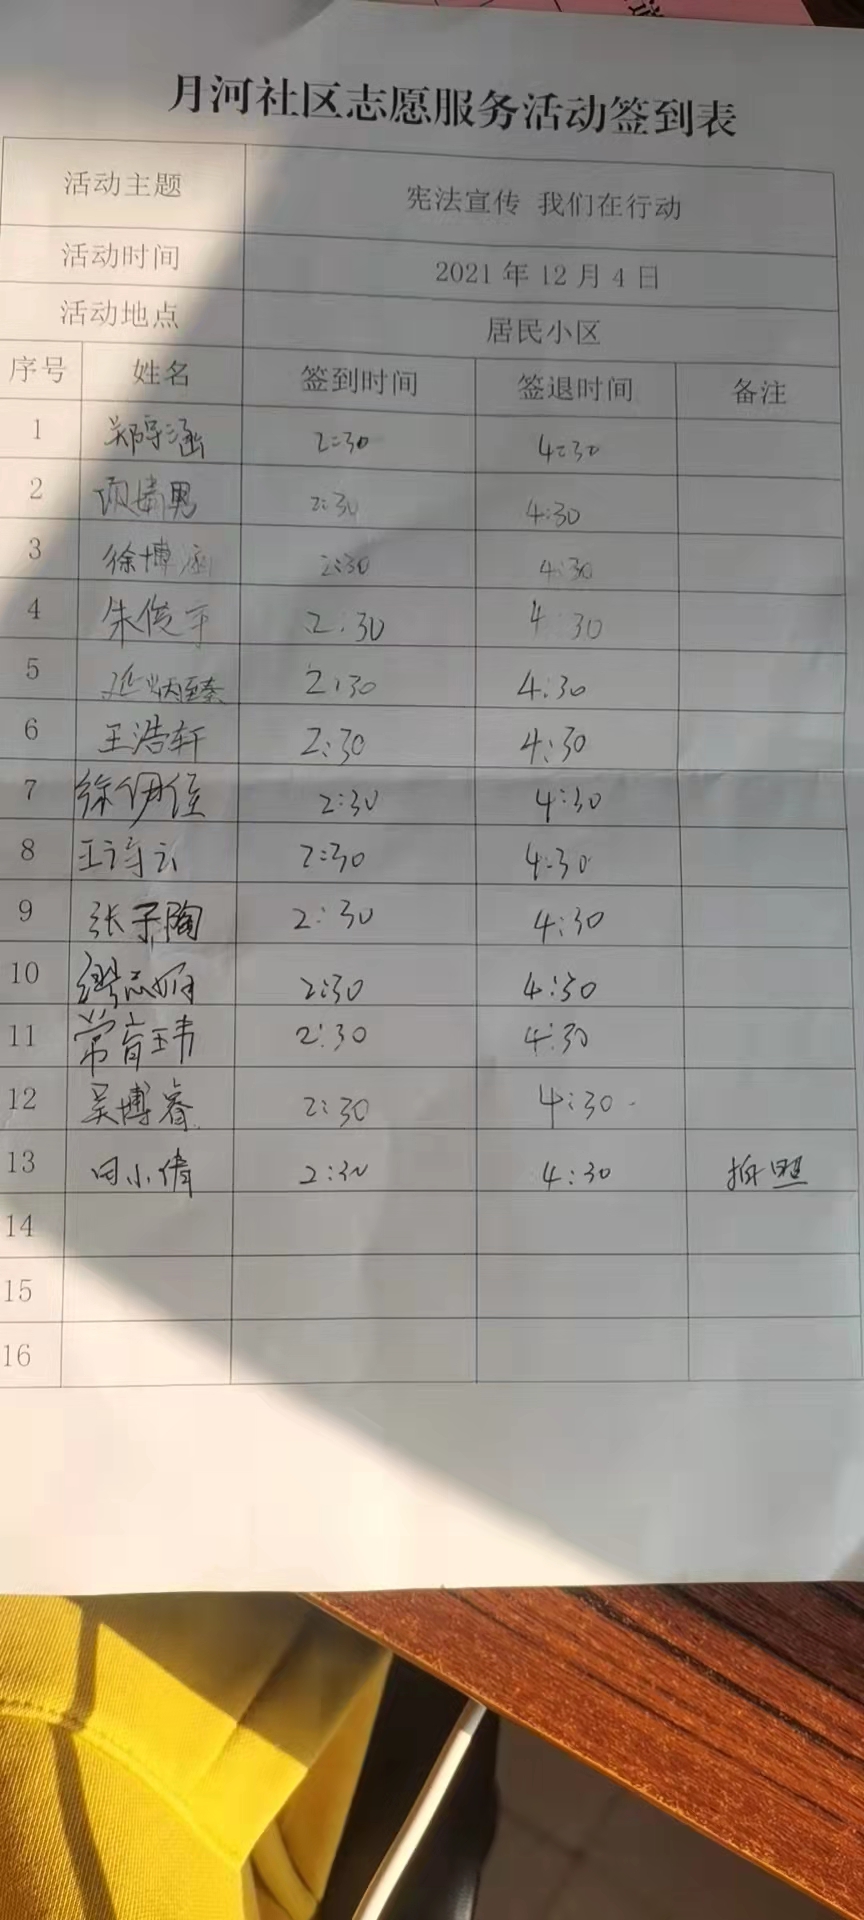 月河社区志愿服务活动签到表
活动主题 宪法宣传 我们在行动
活动时间 2021年12月4日
活动地点 居民小区
序号 姓名 签到时间 签退时间 备注
1 郑宇涵 2:30 4:30
2 男 2:30 4:30
3 徐博涵 2:30 4:30
4 朱俊宇 2:30 4:30
5 延炳臻 2:30 4:30
6 王浩轩 2:30 4:30
7 徐伊 2:30 4:30
8 王诗云 2:30 4:30
9 张子陶 2:30 4:30
10 2:30 4:30
11 常育玮 2:30 4:30
12 吴博睿 2:30 4:30
13 田小倩 2:30 4:30 拍照
14
15
16